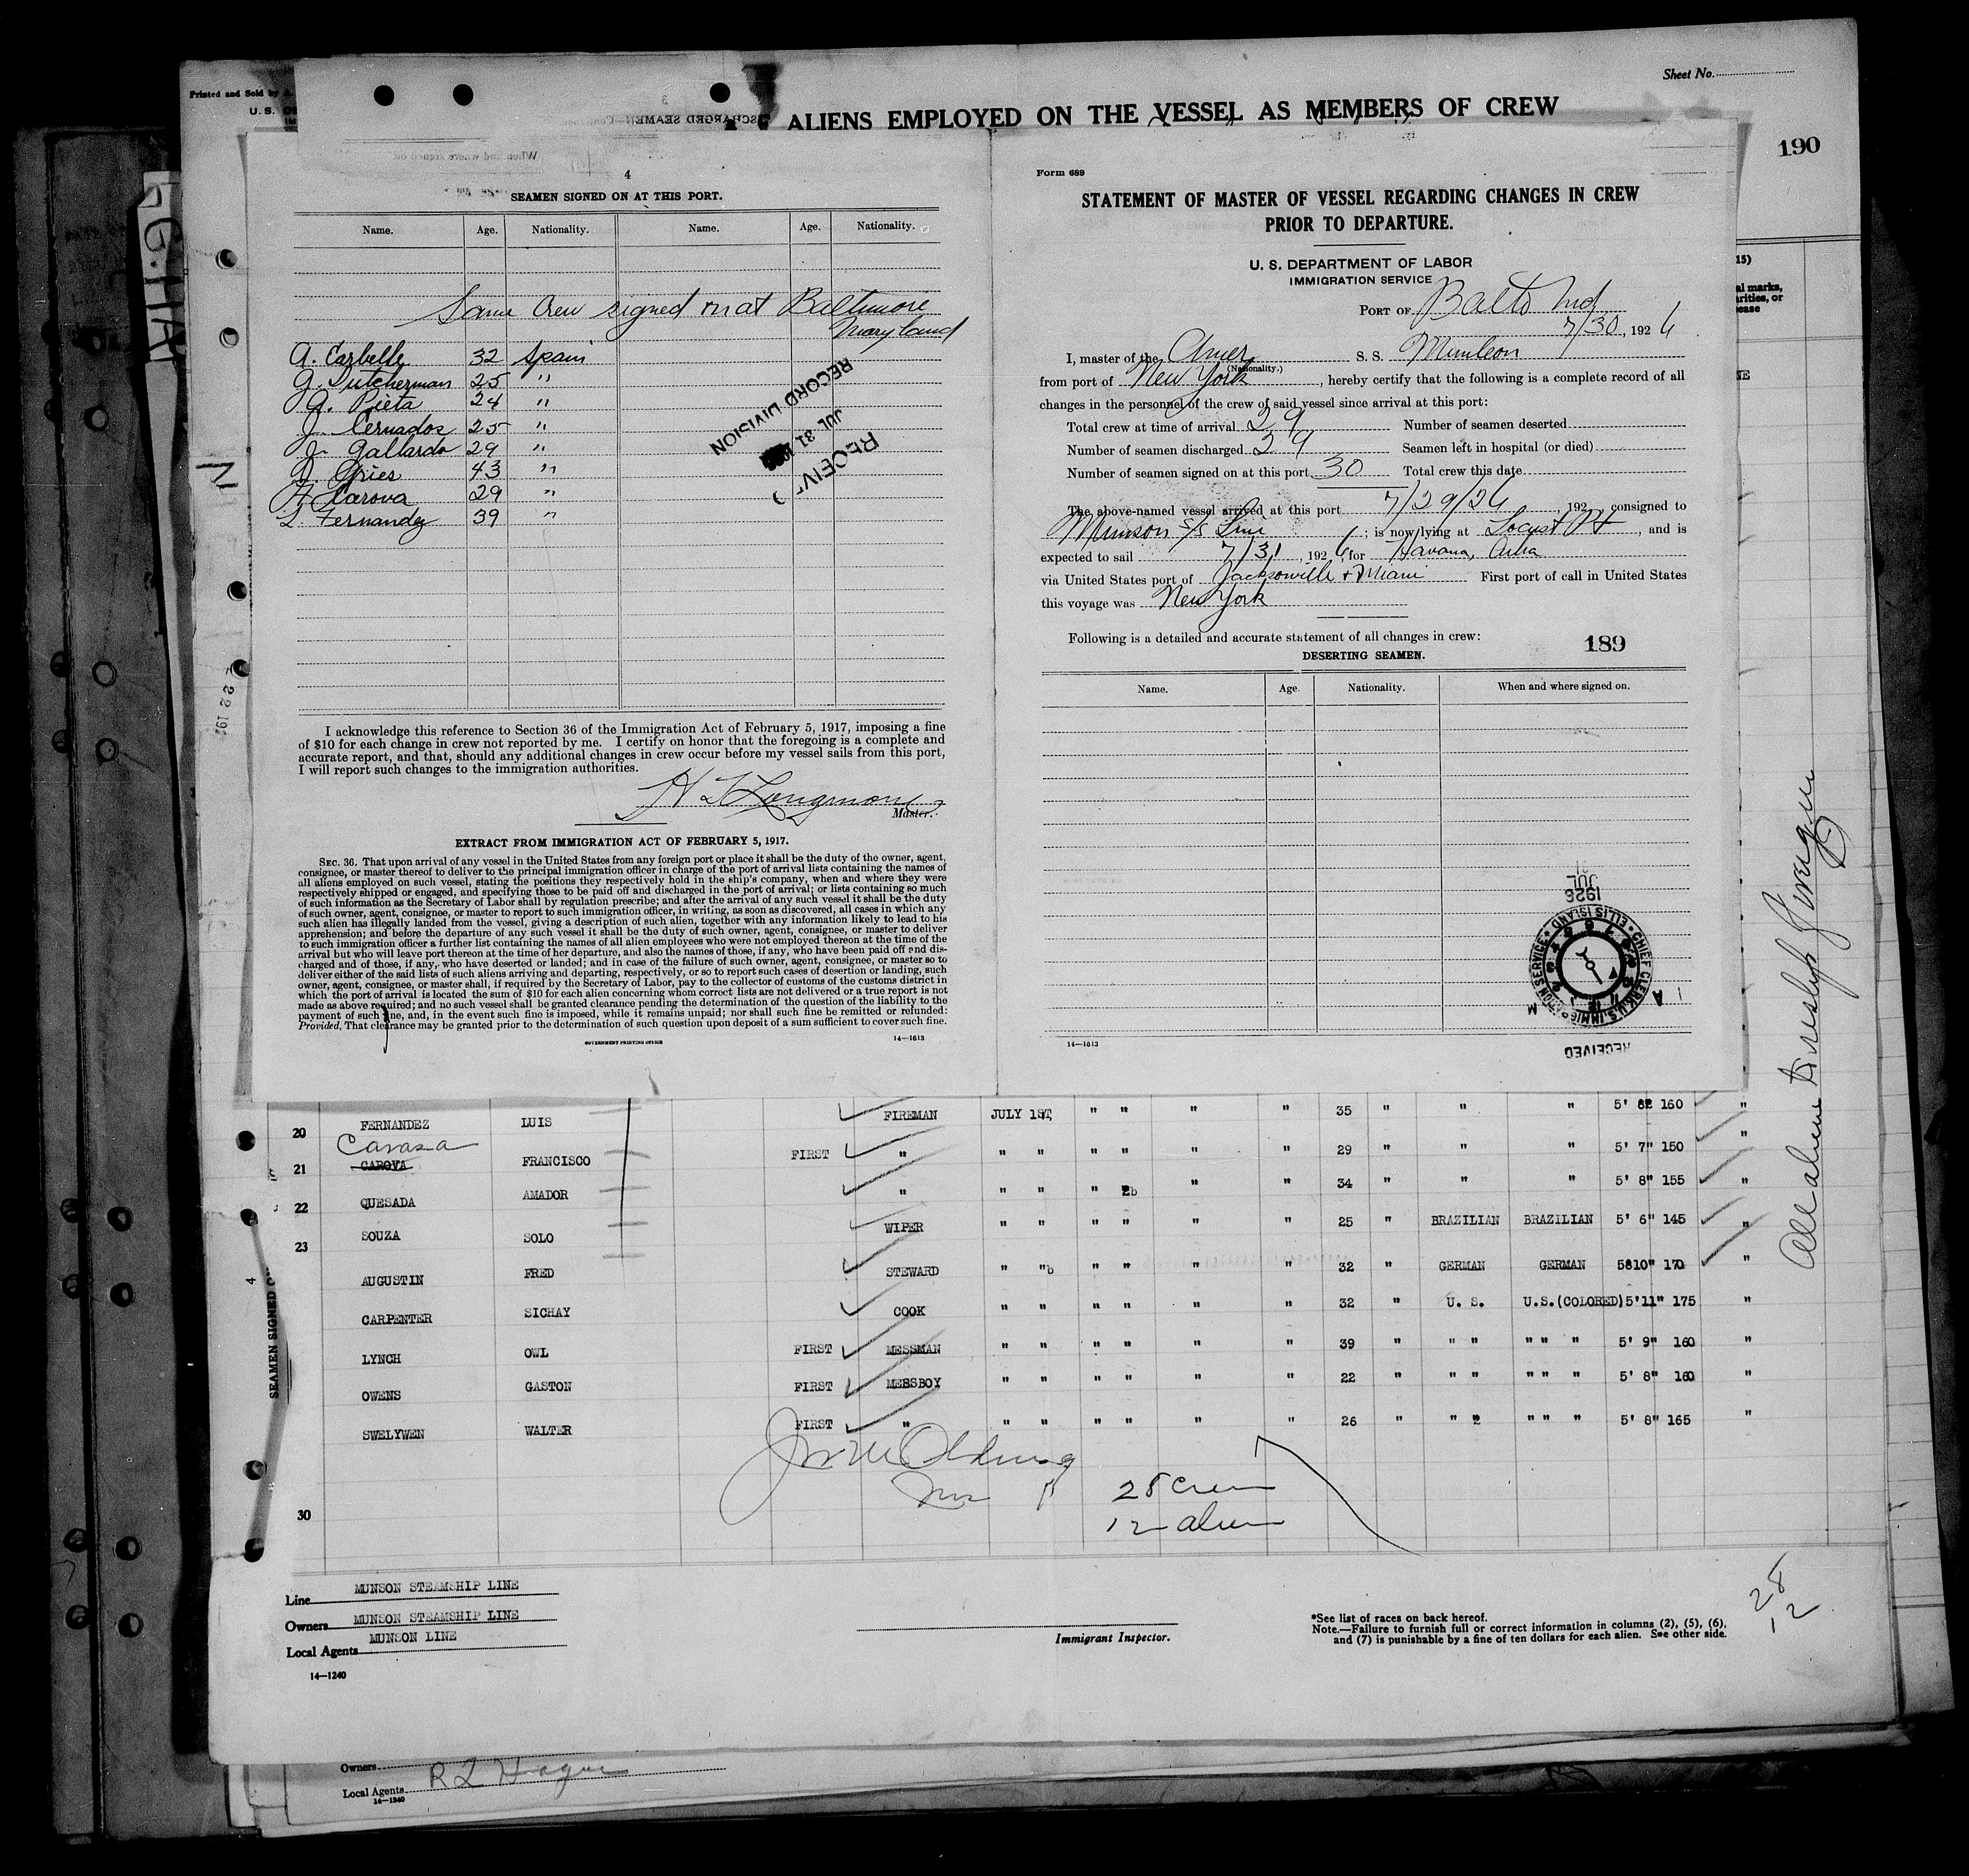 Printed and Sold by
U. S.
Sheet No.
ALIENS EMPLOYED ON THE VESSEL AS MEMBERS OF CREW
190
4
SEAMEN SIGNED ON AT THIS PORT.
Name. Age. Nationality. Name. Age. Nationality.
Same Crew signed on at Baltimore
Maryland
A. Carbelle 32 Spain
J. Dutcherman 25 "
J. Pieta 24 "
J. Cernados 25 "
J. Gallardo 29 "
43 "
F Carova 29 "
L. Fernandez 39 "
RECORD DIVISION
JUL 31
RECEIV
I acknowledge this reference to Section 36 of the Immigration Act of February 5, 1917, imposing a fine
of $10 for each change in crew not reported by me. I certify on honor that the foregoing is a complete and
accurate report, and that, should any additional changes in crew occur before my vessel sails from this port,
I will report such changes to the immigration authorities.
Master.
EXTRACT FROM IMMIGRATION ACT OF FEBRUARY 5, 1917.
SEC. 36. That upon arrival of any vessel in the United States from any foreign port or place it shall be the duty of the owner, agent,
consignee, or master thereof to deliver to the principal immigration officer in charge of the port of arrival lists containing the names of
all aliens employed on such vessel, stating the positions they respectively hold in the ship's company, when and where they were
respectively shipped or engaged, and specifying those to be paid off and discharged in the port of arrival; or lists containing so much
of such information as the Secretary of Labor shall by regulation prescribe; and after the arrival of any such vessel it shall be the duty
of such owner, agent, consignee, or master to report to such immigration officer, in writing, as soon as discovered, all cases in which any
such alien has illegally landed from the vessel, giving a description of such alien, together with any information likely to lead to his
apprehension; and before the departure of any such vessel it shall be the duty of such owner, agent, consignee, or master to deliver
to such immigration officer a further list containing the names of all alien employees who were not employed thereon at the time of the
arrival but who will leave port thereon at the time of her departure, and also the names of those, if any, who have been paid off and dis-
charged and of those, if any, who have deserted or landed; and in case of the failure of such owner, agent, consignee, or master so to
deliver either of the said lists of such aliens arriving and departing, respectively, or so to report such cases of desertion or landing, such
owner, agent, consignee, or master shall, if required by the Secretary of Labor, pay to the collector of customs of the customs district in
which the port of arrival is located the sum of $10 for each alien concerning whom correct lists are not delivered or a true report is not
made as above required; and no such vessel shall be granted clearance pending the determination of the question of the liability to the
payment of such fine, and, in the event such fine is imposed, while it remains unpaid; nor shall such fine be remitted or refunded:
Provided, That clearance may be granted prior to the determination of such question upon deposit of a sum sufficient to cover such fine.
GOVERNMENT PRINTING OFFICE 14—1613
Form 689
STATEMENT OF MASTER OF VESSEL REGARDING CHANGES IN CREW
PRIOR TO DEPARTURE.
U. S. DEPARTMENT OF LABOR
IMMIGRATION SERVICE
PORT OF Balto Md
7/30, 1926
I, master of the Amer S. S. Munleon
(Nationality.)
from port of New York, hereby certify that the following is a complete record of all
changes in the personnel of the crew of said vessel since arrival at this port:
Total crew at time of arrival 29 Number of seamen deserted
Number of seamen discharged 29 Seamen left in hospital (or died)
Number of seamen signed on at this port 30 Total crew this date
The above-named vessel arrived at this port 7/29/26, 192 , consigned to
Munson S/S Line; is now lying at Locust Pt, and is
expected to sail 7/31, 1926, for Havana, Cuba
via United States port of Jacksonville + Miami First port of call in United States
this voyage was New York
Following is a detailed and accurate statement of all changes in crew:
189
DESERTING SEAMEN.
Name. Age. Nationality. When and where signed on.
JUL
1926
CHIEF CLERK U.S. IMMIGRATION SERVICE ELLIS ISLAND
A M
RECEIVED
14—1613
20 FERNANDEZ LUIS FIREMAN JULY 1ST, " " " " 35 " " " 5' 160 "
Carasa
21 CAROVA FRANCISCO FIRST " " " " " " " 29 " " " 5' 7" 150 "
22 QUESADA AMADOR " " " " " " 34 " " " 5' 8" 155 "
23 SOUZA SOLO WIPER " " " " " " 25 " BRAZILIAN BRAZILIAN 5' 6" 145 "
AUGUSTIN FRED STEWARD " " " " " " 32 " GERMAN GERMAN 5810" 170 "
CARPENTER SICHAY COOK " " " " " " 32 " U. S. U.S.(COLORED) 5'11" 175 "
LYNCH OWL FIRST MESSMAN " " " " " " 39 " " " " " " 5' 9" 160 "
OWENS GASTON FIRST MESSBOY " " " " " " 22 " " " " " " 5' 8" 160 "
SWELYWEN WALTER FIRST " " " " " " " 26 " " " " " 5' 8" 165 "
28 Crew
12 alien
30
SEAMEN SIGNED
Line MUNSON STEAMSHIP LINE
Owners MUNSON STEAMSHIP LINE
Local Agents MUNSON LINE
14—1240
Immigrant Inspector.
*See list of races on back hereof.
Note.—Failure to furnish full or correct information in columns (2), (5), (6),
and (7) is punishable by a fine of ten dollars for each alien. See other side.
28
12
Owners
Local Agents R L Hague
14—1240